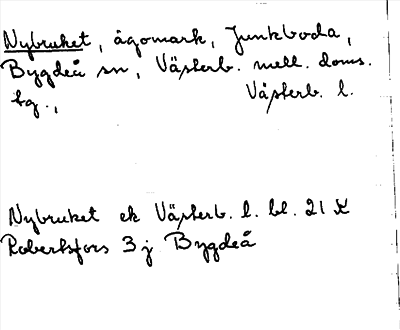 Nybruket, ägomark, Junkboda,
Bygdeå sn, Västerb. mell. doms.
tg., Västerb. l.
Nybruket ek Västerb. l. bl. 21 X
Robertsfors 3 j Bygdeå